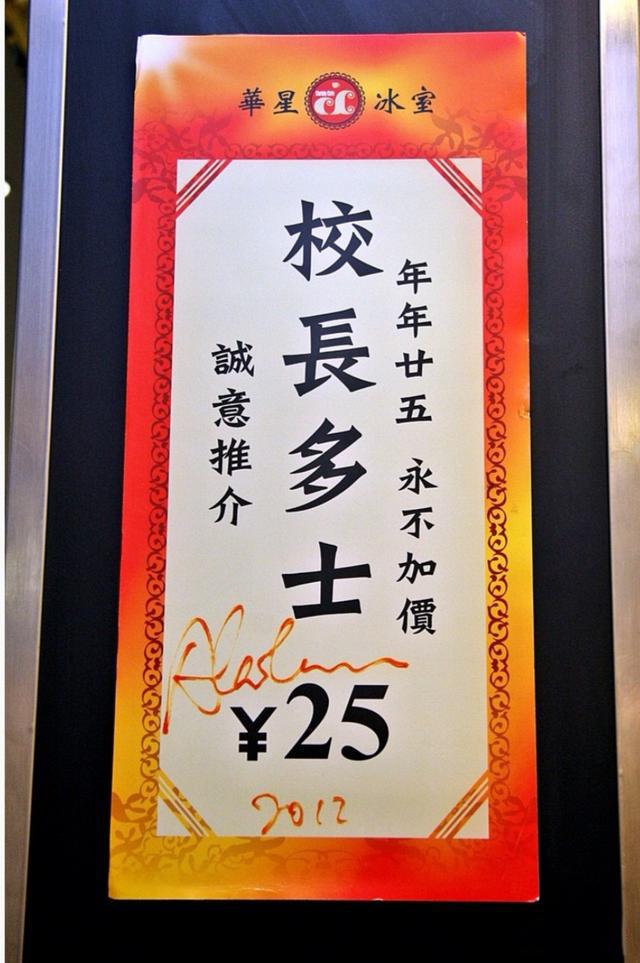 華星冰室
年年廿五 永不加價
校長多士
誠意推介
¥25
2012